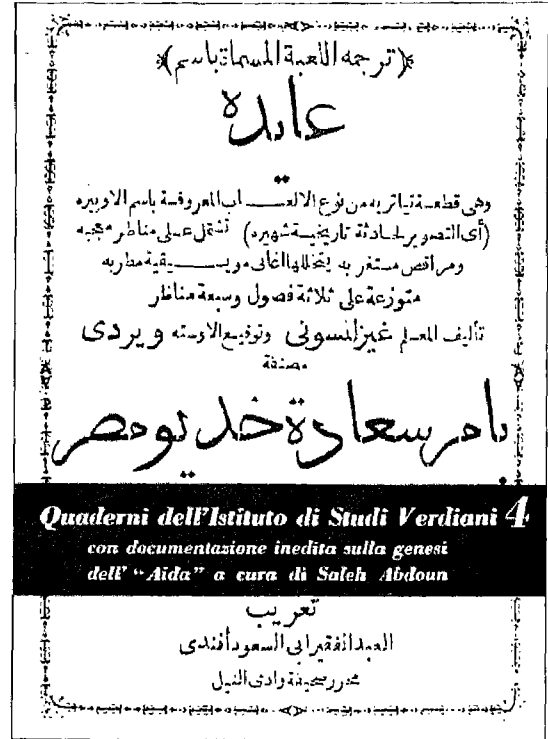 (ترجمة اللعبة المسماة باسم)
عايدة
وهى قطعة تياتريه من نوع الالعــاب المعروفة باسم الاوبيره
(أى التصوير لحادثة تاريخية شهيره) تشتمل على مناظر مجبه
ومراقص مستغربه يتخللها اغانى مويسيقية مطربه
متوزعة على ثلاثة فصول وسبعة مناظر
تأليف المعلم غيزلنسونى وتوقيع الاوسته ويردى
مصنفة
بامر سعادة خديو مصر
Quaderni dell'Istituto di Studi Verdiani 4
con documentazione inedita sulla genesi
dell' "Aida" a cura di Saleh Abdoun
تعريب
العبد الفقير ابى السعود أفندى
محرر صحيفة وادى النيل